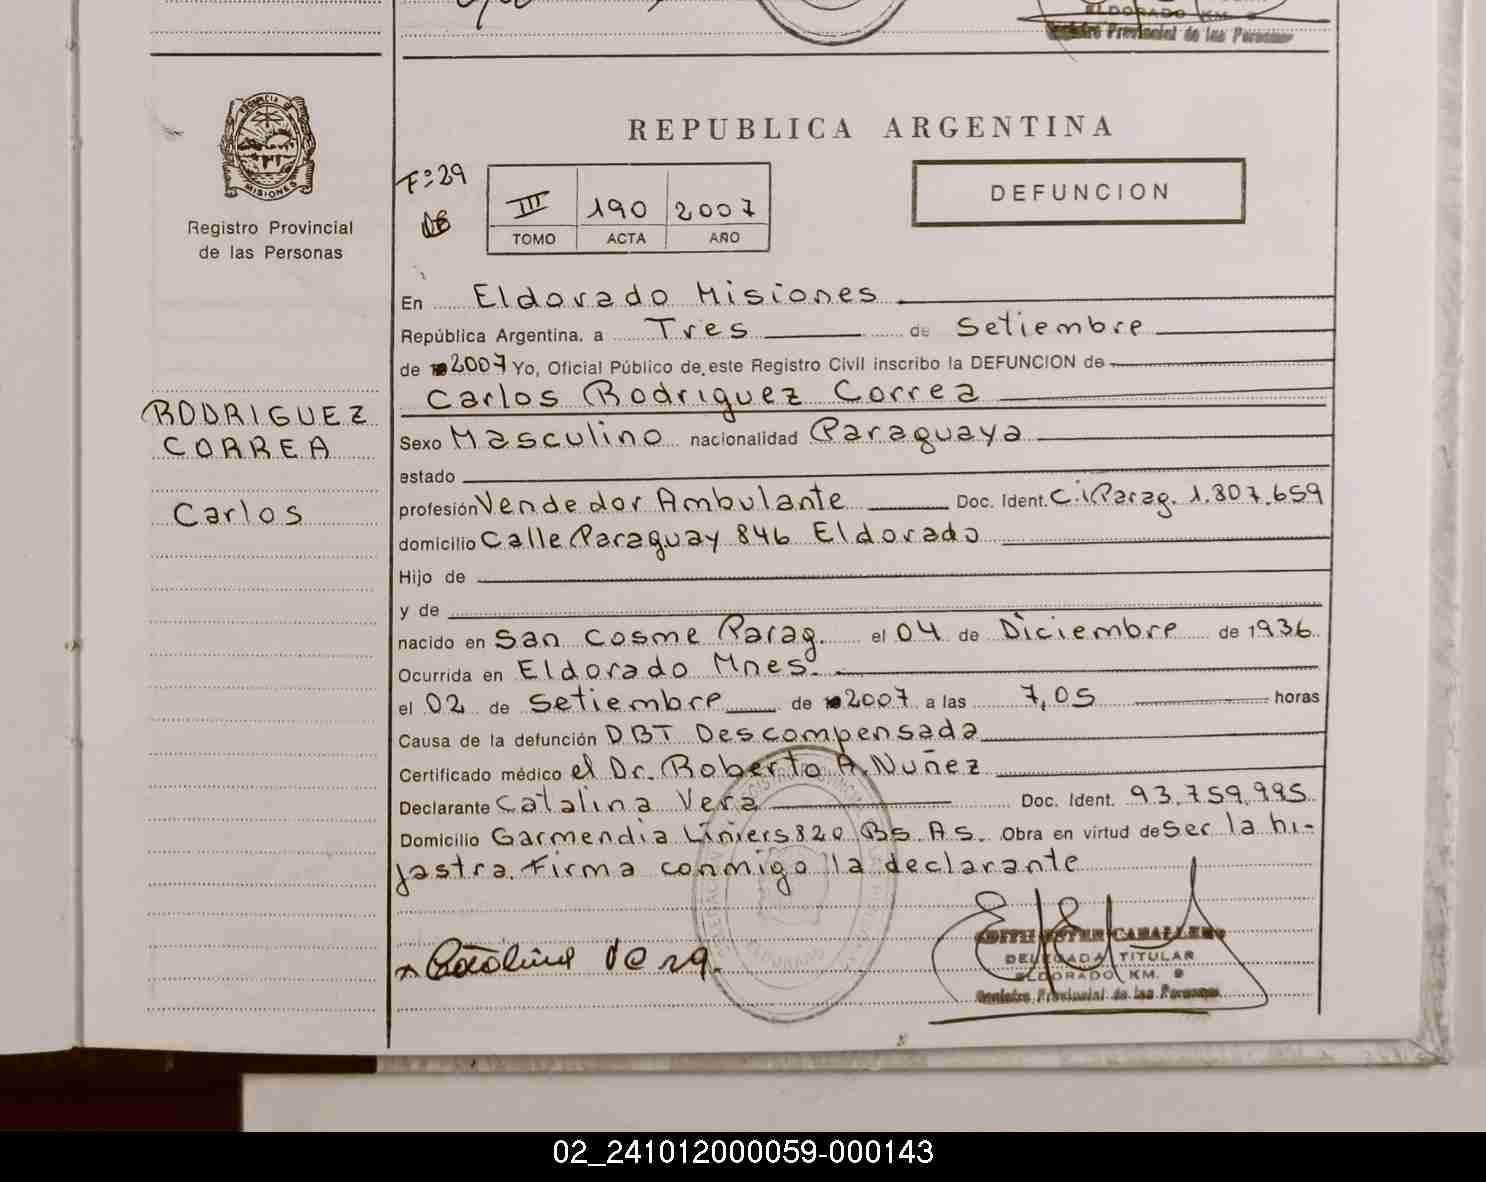 ELDORADO KM. 9
Registro Provincial de las Personas
PROVINCIA DE
MISIONES
Registro Provincial
de las Personas
REPUBLICA ARGENTINA
Fº 29
III 190 2007
TOMO ACTA AÑO
DEFUNCION
En Eldorado Misiones
República Argentina, a Tres de Setiembre
de 2007 Yo, Oficial Público de este Registro Civil inscribo la DEFUNCION de
Carlos Rodriguez Correa
RODRIGUEZ
CORREA
Carlos
Sexo Masculino nacionalidad Paraguaya
estado
profesión Vendedor Ambulante Doc. Ident. C.i Parag. 1.807.659
domicilio Calle Paraguay 846 Eldorado
Hijo de
y de
nacido en San Cosme Parag. el 04 de Diciembre de 1936
Ocurrida en Eldorado Mnes.
el 02 de Setiembre de 2007 a las 7,05 horas
Causa de la defunción DBT Descompensada
Certificado médico el Dr. Roberto A. Nuñez
Declarante Catalina Vera Doc. Ident. 93.759.995
Domicilio Garmendia Liniers 820 Bs. As. Obra en virtud de Ser la hi-
jastra. Firma conmigo la declarante
Catalina Vera.
EDITH ESTER CABALLERO
DELEGADA TITULAR
ELDORADO KM. 9
Registro Provincial de las Personas
02_241012000059-000143